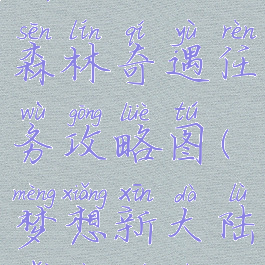 sēn lín qí yù rèn
森林奇遇任
wù gōng lüè tú
务攻略图(
mèng xiǎng xīn dà lù
梦想新大陆